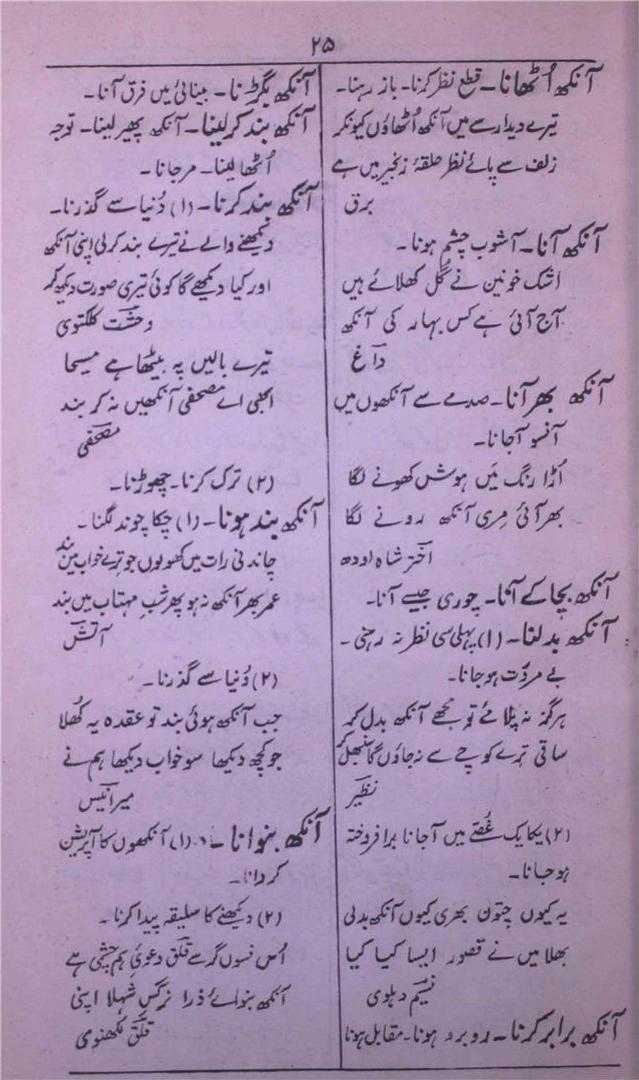 ۲۵
آنکھ اُٹھانا۔ قطع نظر کرنا۔ باز رہنا۔
تیرے دیدار سے میں آنکھ اُٹھاؤں کیونکر
زلف سے پائے نظر حلقۂ زنجیر میں ہے
برق
آنکھ آنا۔ آشوب چشم ہونا۔
اشک خونین نے گل کھلائے ہیں
آج آئی ہے کس بہار کی آنکھ
داغ
آنکھ بھر آنا۔ صدمے سے آنکھوں میں
آنسو آجانا۔
اُڑا رنگ میں ہوش کھونے لگا
بھر آئی مِری آنکھ رونے لگا
اختر شاہ اودھ
آنکھ بچا کے آنا۔ چوری چھپے آنا۔
آنکھ بدلنا۔ (۱) پہلی سی نظر نہ رہنی۔
بے مروّت ہوجانا۔
ہرگز نہ پلا مئے تو مجھے آنکھ بدل کر
ساقی ترے کوچے سے نہ جاؤں گا سنبھل کر
نظیر
(۲) یکایک غُصّے میں آجانا برافروختہ
ہوجانا۔
یہ کیوں چتون پھری کیوں آنکھ بدلی
بھلا میں نے قصور ایسا کیا کیا
نسیم دہلوی
آنکھ برابر کرنا۔ روبرو ہونا۔ مقابل ہونا
آنکھ بگڑنا۔ بینائی میں فرق آنا۔
آنکھ بند کر لینا۔ آنکھ پھیر لینا۔ توجہ
اُٹھا لینا۔ مرجانا۔
آنکھ بند کرنا۔ (۱) دُنیا سے گذرنا۔
دیکھنے والے نے تیرے بند کر لی اپنی آنکھ
اور کیا دیکھے گا کوئی تیری صورت دیکھ کر
وحشت کلکتوی
تیرے بالیں پہ بیٹھا ہے مسیحا
ابھی اے مصحفی آنکھیں نہ کر بند
مصحفی
(۲) ترک کرنا۔ چھوڑنا۔
آنکھ بند ہونا۔ (۱) چکا چوند لگنا۔
چاندنی رات میں کھولوں جو ترے خواب میں بند
عمر بھر آنکھ نہ ہو پھر شبِ مہتاب میں بند
آتش
(۲) دُنیا سے گذرنا۔
جب آنکھ ہوئی بند تو عقدہ یہ کُھلا
جو کچھ دیکھا سو خواب دیکھا ہم نے
میر انیس
آنکھ بنوانا۔ (۱) آنکھوں کا آپریشن
کروانا۔
(۲) دیکھنے کا سلیقہ پیدا کرنا۔
اُس فسوں گر سے قلق دعویٔ ہم چشمی ہے
آنکھ بنوائے ذرا نرگس شہلا اپنی
قلق لکھنوی